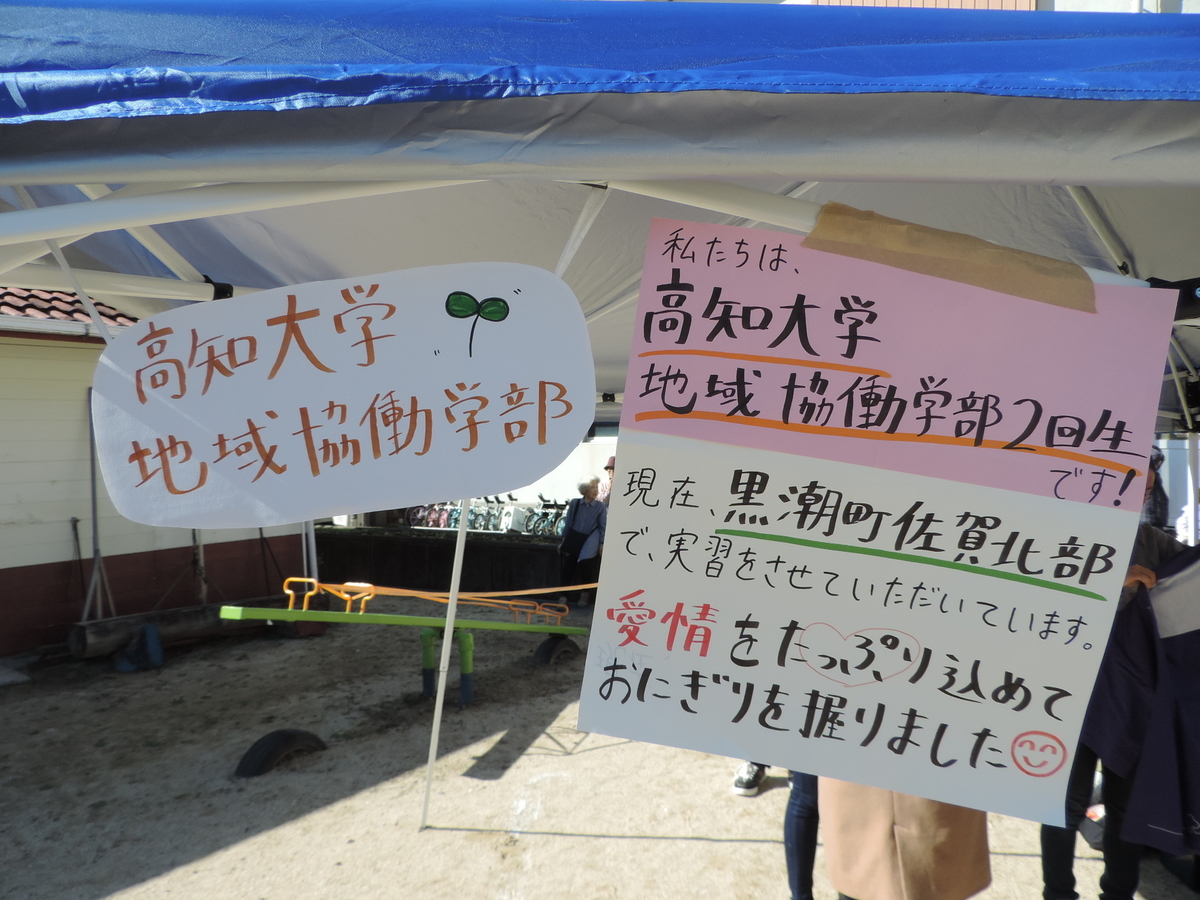 高知大学
地域協働学部
私たちは、
高知大学
地域協働学部2回生
です!
現在、黒潮町佐賀北部
で、実習をさせていただいています。
愛情をたっぷり込めて
おにぎりを握りました